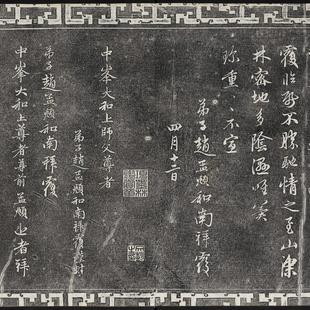 覆臨紙不勝馳情之至山深
林密地多陰濕唯冀
珍重〻不宣
弟子趙孟頫和南拜覆
四月十二日
中峯大和上師父尊者
弟子趙孟頫和南拜覆謹封
弟子趙孟頫和南拜覆
中峯大和上尊者尊前孟頫近者拜